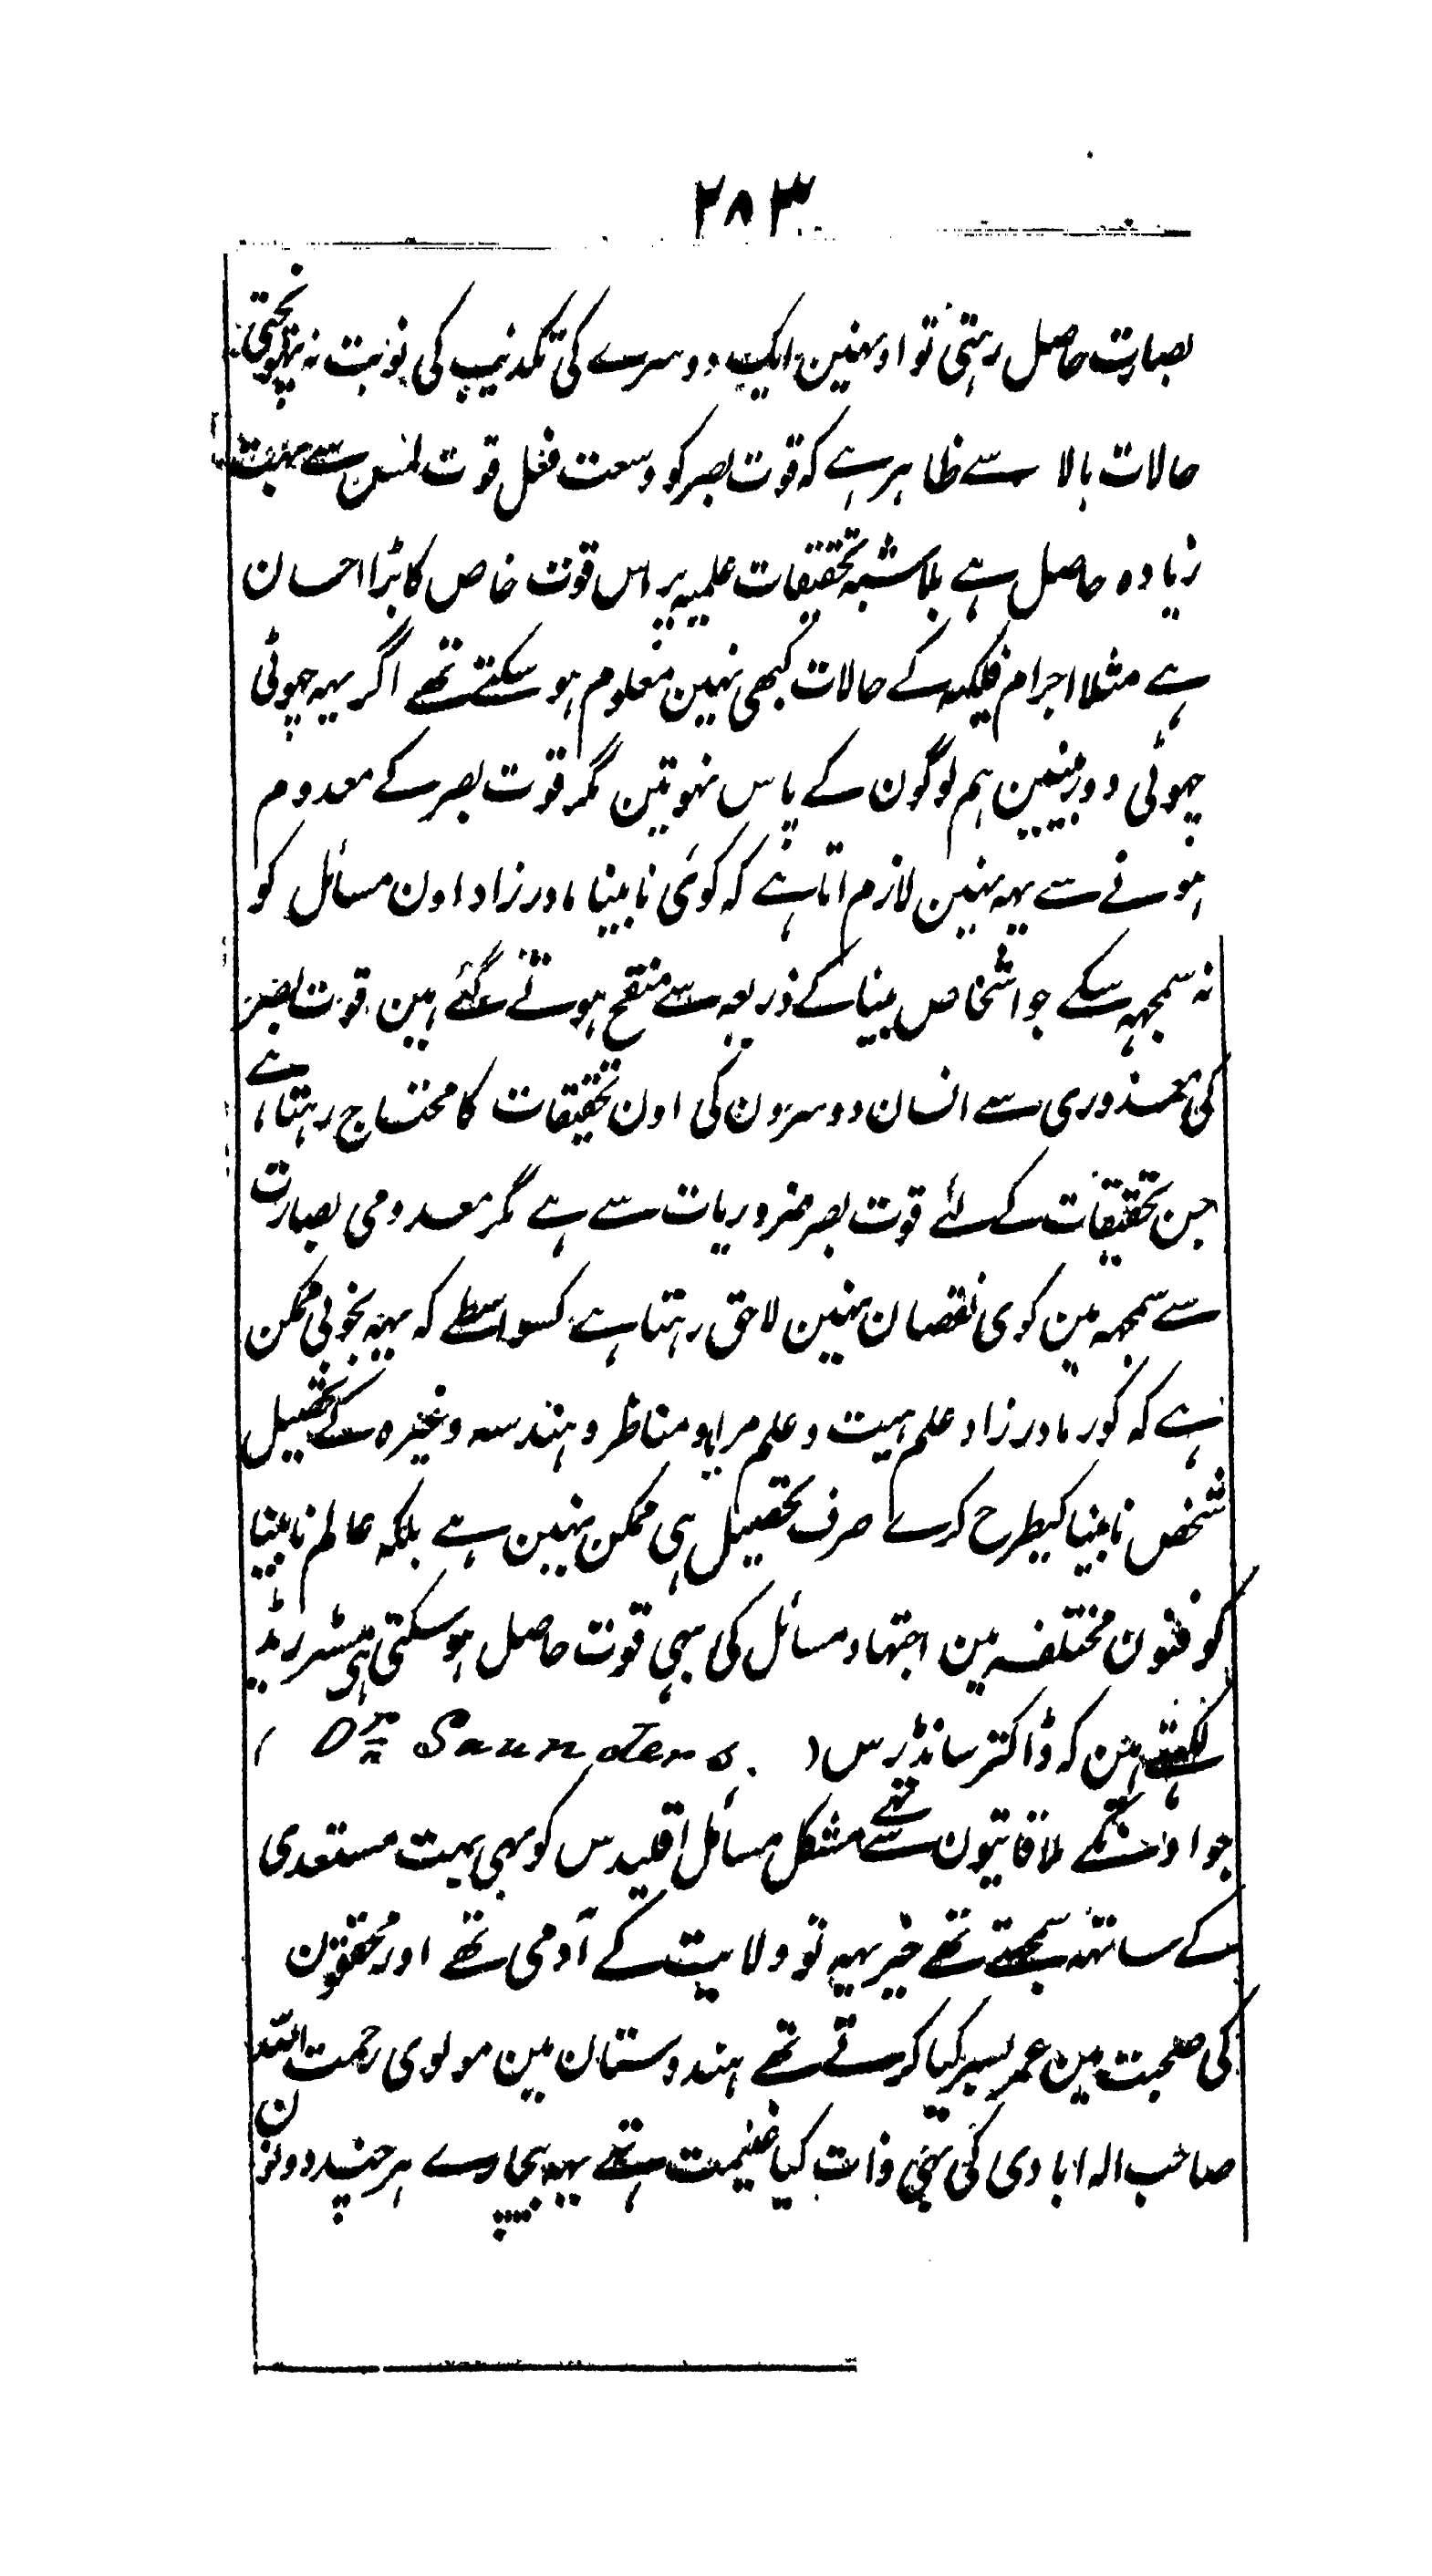 ۲۸۳
بصارت حاصل رہتی تو اونہین ایک دوسرے کی تکذیب کی نوبت نہ پہونچتی
حالات بالا سے ظاہر ہے کہ قوت بصر کو وسعت فعل قوت لمس سے بہت
زیادہ حاصل ہے بلاشبہ تحقیقات علمیہ پر اس قوت خاص کا بڑا احسان
ہے مثلا اجرام فلکیہ کے حالات کبھی نہین معلوم ہو سکتے تھے اگر یہہ چھوٹی
چھوٹی دوربینین ہم لوگون کے پاس نہوتین مگر قوت بصر کے معدوم
ہونے سے یہہ نہین لازم اتا ہے کہ کوئی نابینا مادرزاد اون مسائل کو
نہ سمجہہ سکے جو اشخاص بینا کے ذریعہ سے منقح ہوتے گئے ہین قوت بصر
کی معذوری سے انسان دوسرون کی اون تحقیقات کا محتاج رہتا ہے
جن تحقیقات کے لئے قوت بصر ضروریات سے ہے مگر معدومی بصارت
سے سمجہہ مین کوی نقصان نہین لاحق رہتا ہے کسواسطے کہ یہہ بخوبی ممکن
ہے کہ کور مادرزاد علم ہیت و علم مرایا و مناظر و ہندسہ وغیرہ کے تحصیل
شخص نابینا کیطرح کرے صرف تحصیل ہی ممکن نہین ہے بلکہ عالم نابینا
کو فنون مختلفہ مین اجتہاد مسائل کی بہی قوت حاصل ہو سکتی ہی مسٹر ریڈ
لکھتے ہین کہ ڈاکٹر سانڈرس ( Dr Saunders. )
جو اونکے ملاقاتیون سے تھے مشکل مسائل اقلیدس کو بہی بہت مستعدی
کے ساتھہ سمجھتے تھے خیر یہہ تو ولایت کے آدمی تھے اور محققون
کی صحبت مین عمر بسر کیا کرتے تھے ہندوستان مین مولوی رحمت اللہ
صاحب الہ ابادی کی بہی ذات کیا غنیمت ہے یہہ بیچارے ہر چند دونون